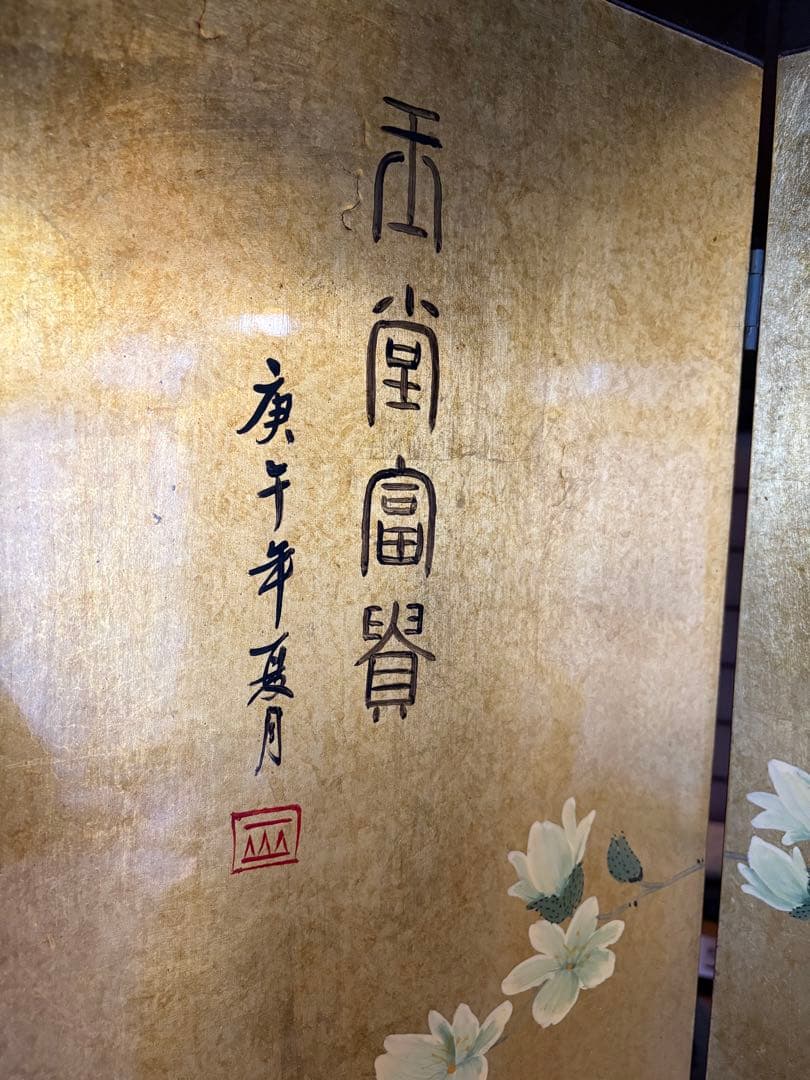 玉堂富貴
庚午年夏月